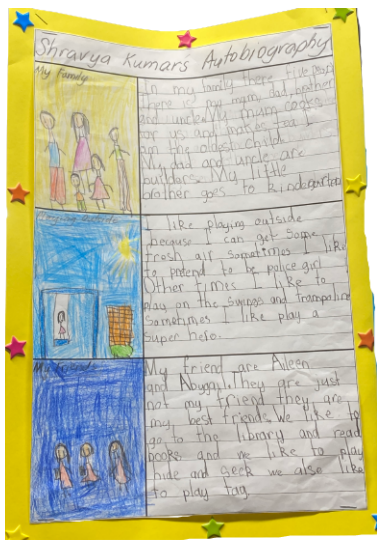 Shravya Kumars Autobiography
My Family
In my family there five people
There is my mum, dad, brother
and uncle. My mum cooks
for us and makes tea I
am the oldest child.
My dad and uncle are
builders. My little
brother goes to kindergarten
Playing outside
I like playing outside
because I can get some
fresh air Sometimes I like
to pretend to be police girl
Other times I like to
play on the swings and trampoline
Sometimes I like play a
super hero.
My Friend
My friend are Aileen
and They are just
not my friend they are
my best friends. We like to
go to the library and read
books and we like to play
hide and seek we also like
to play tag